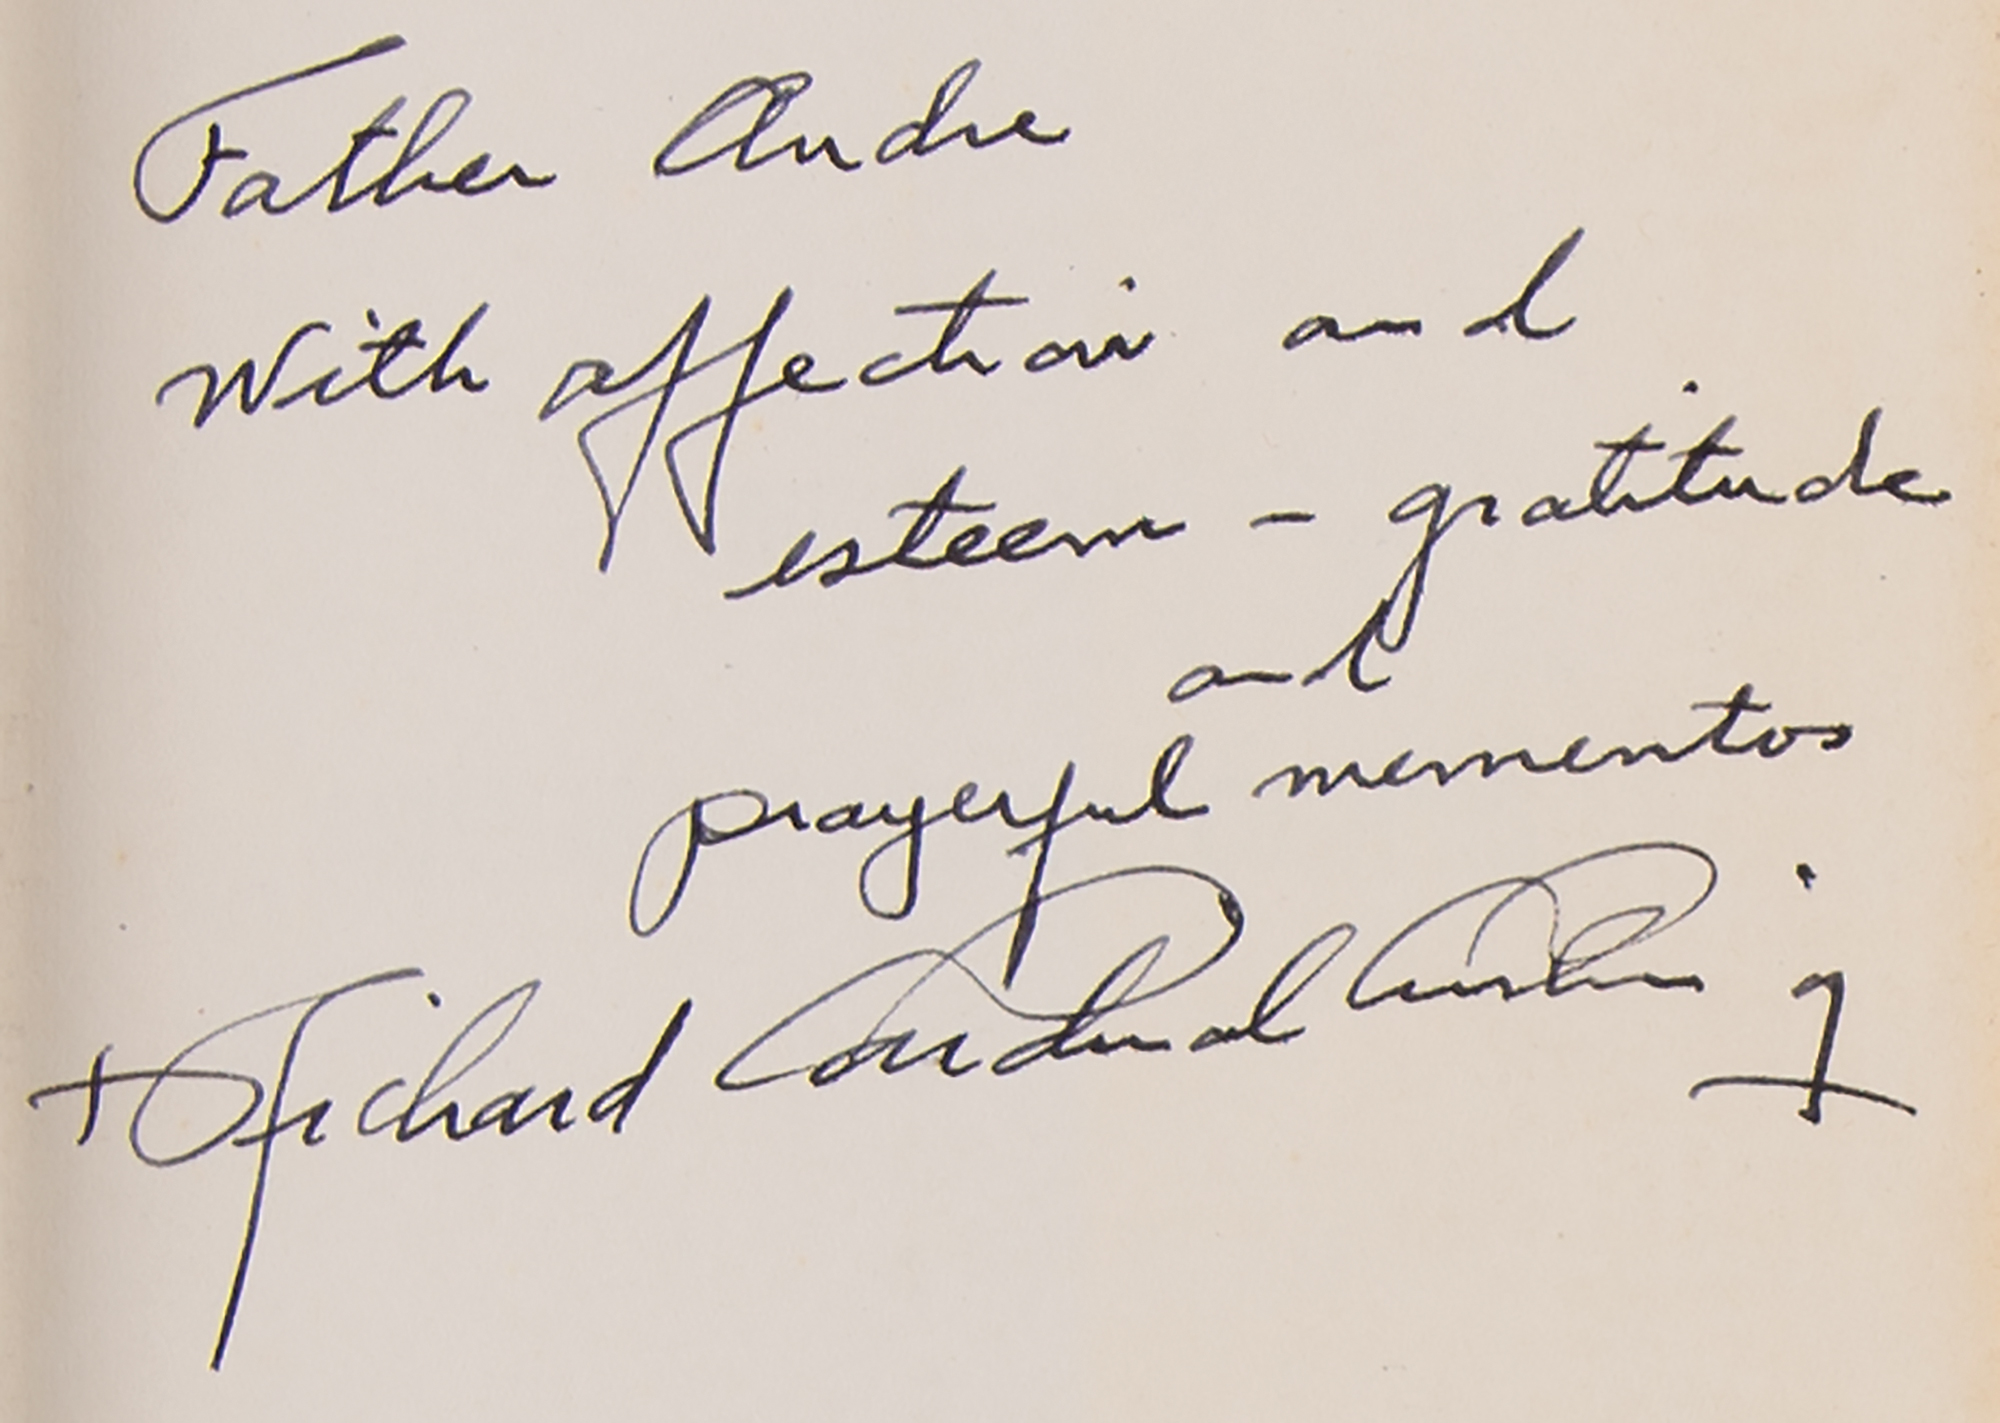 Father Andre
With affection and
esteem - gratitude
and
prayerful mementos
+ Richard Cardinal Cushing